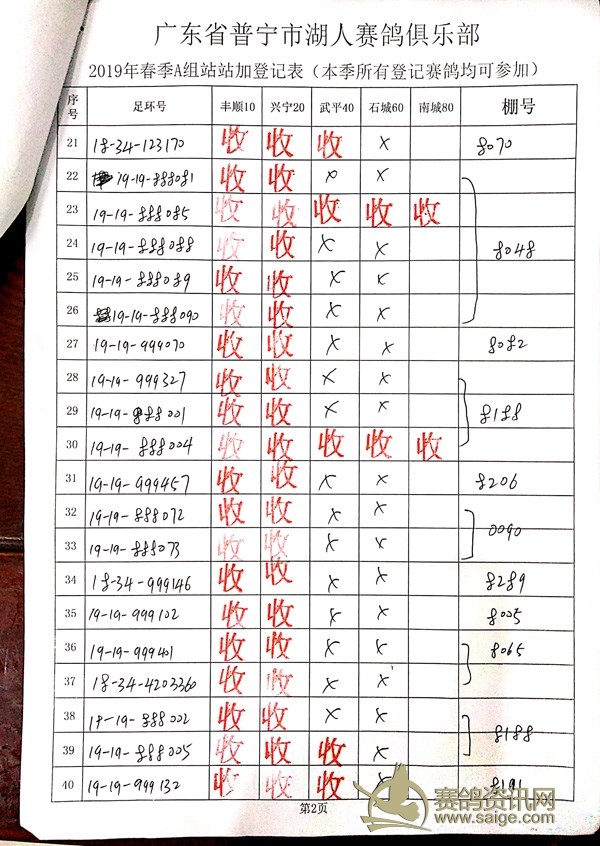 广东省普宁市湖人赛鸽俱乐部
2019年春季A组站站加登记表（本季所有登记赛鸽均可参加）
序号 足环号 丰顺10 兴宁20 武平40 石城60 南城80 棚号
21 18-34-123170 收 收 收 × 8070
22 19-19-888081 收 收 × ×
23 19-19-888085 收 收 收 收 收
24 19-19-888088 收 收 × × 8048
25 19-19-888089 收 收 × ×
26 19-19-888090 收 收 × ×
27 19-19-999070 收 收 × × 8082
28 19-19-999327 收 收 × ×
29 19-19-888001 收 收 × × 8188
30 19-19-888004 收 收 收 收 收
31 19-19-999457 收 收 × × 8206
32 19-19-888072 收 收 × × 0090
33 19-19-888073 收 收 × ×
34 18-34-999146 收 收 × × 8289
35 19-19-999102 收 收 × × 8005
36 19-19-999401 收 收 × × 8065
37 18-34-4203360 收 收 × ×
38 19-19-888002 收 收 × × 8188
39 19-19-888005 收 收 收 ×
40 19-19-999132 收 收 收 × 8191
第2页
赛鸽资讯网
www.saige.com